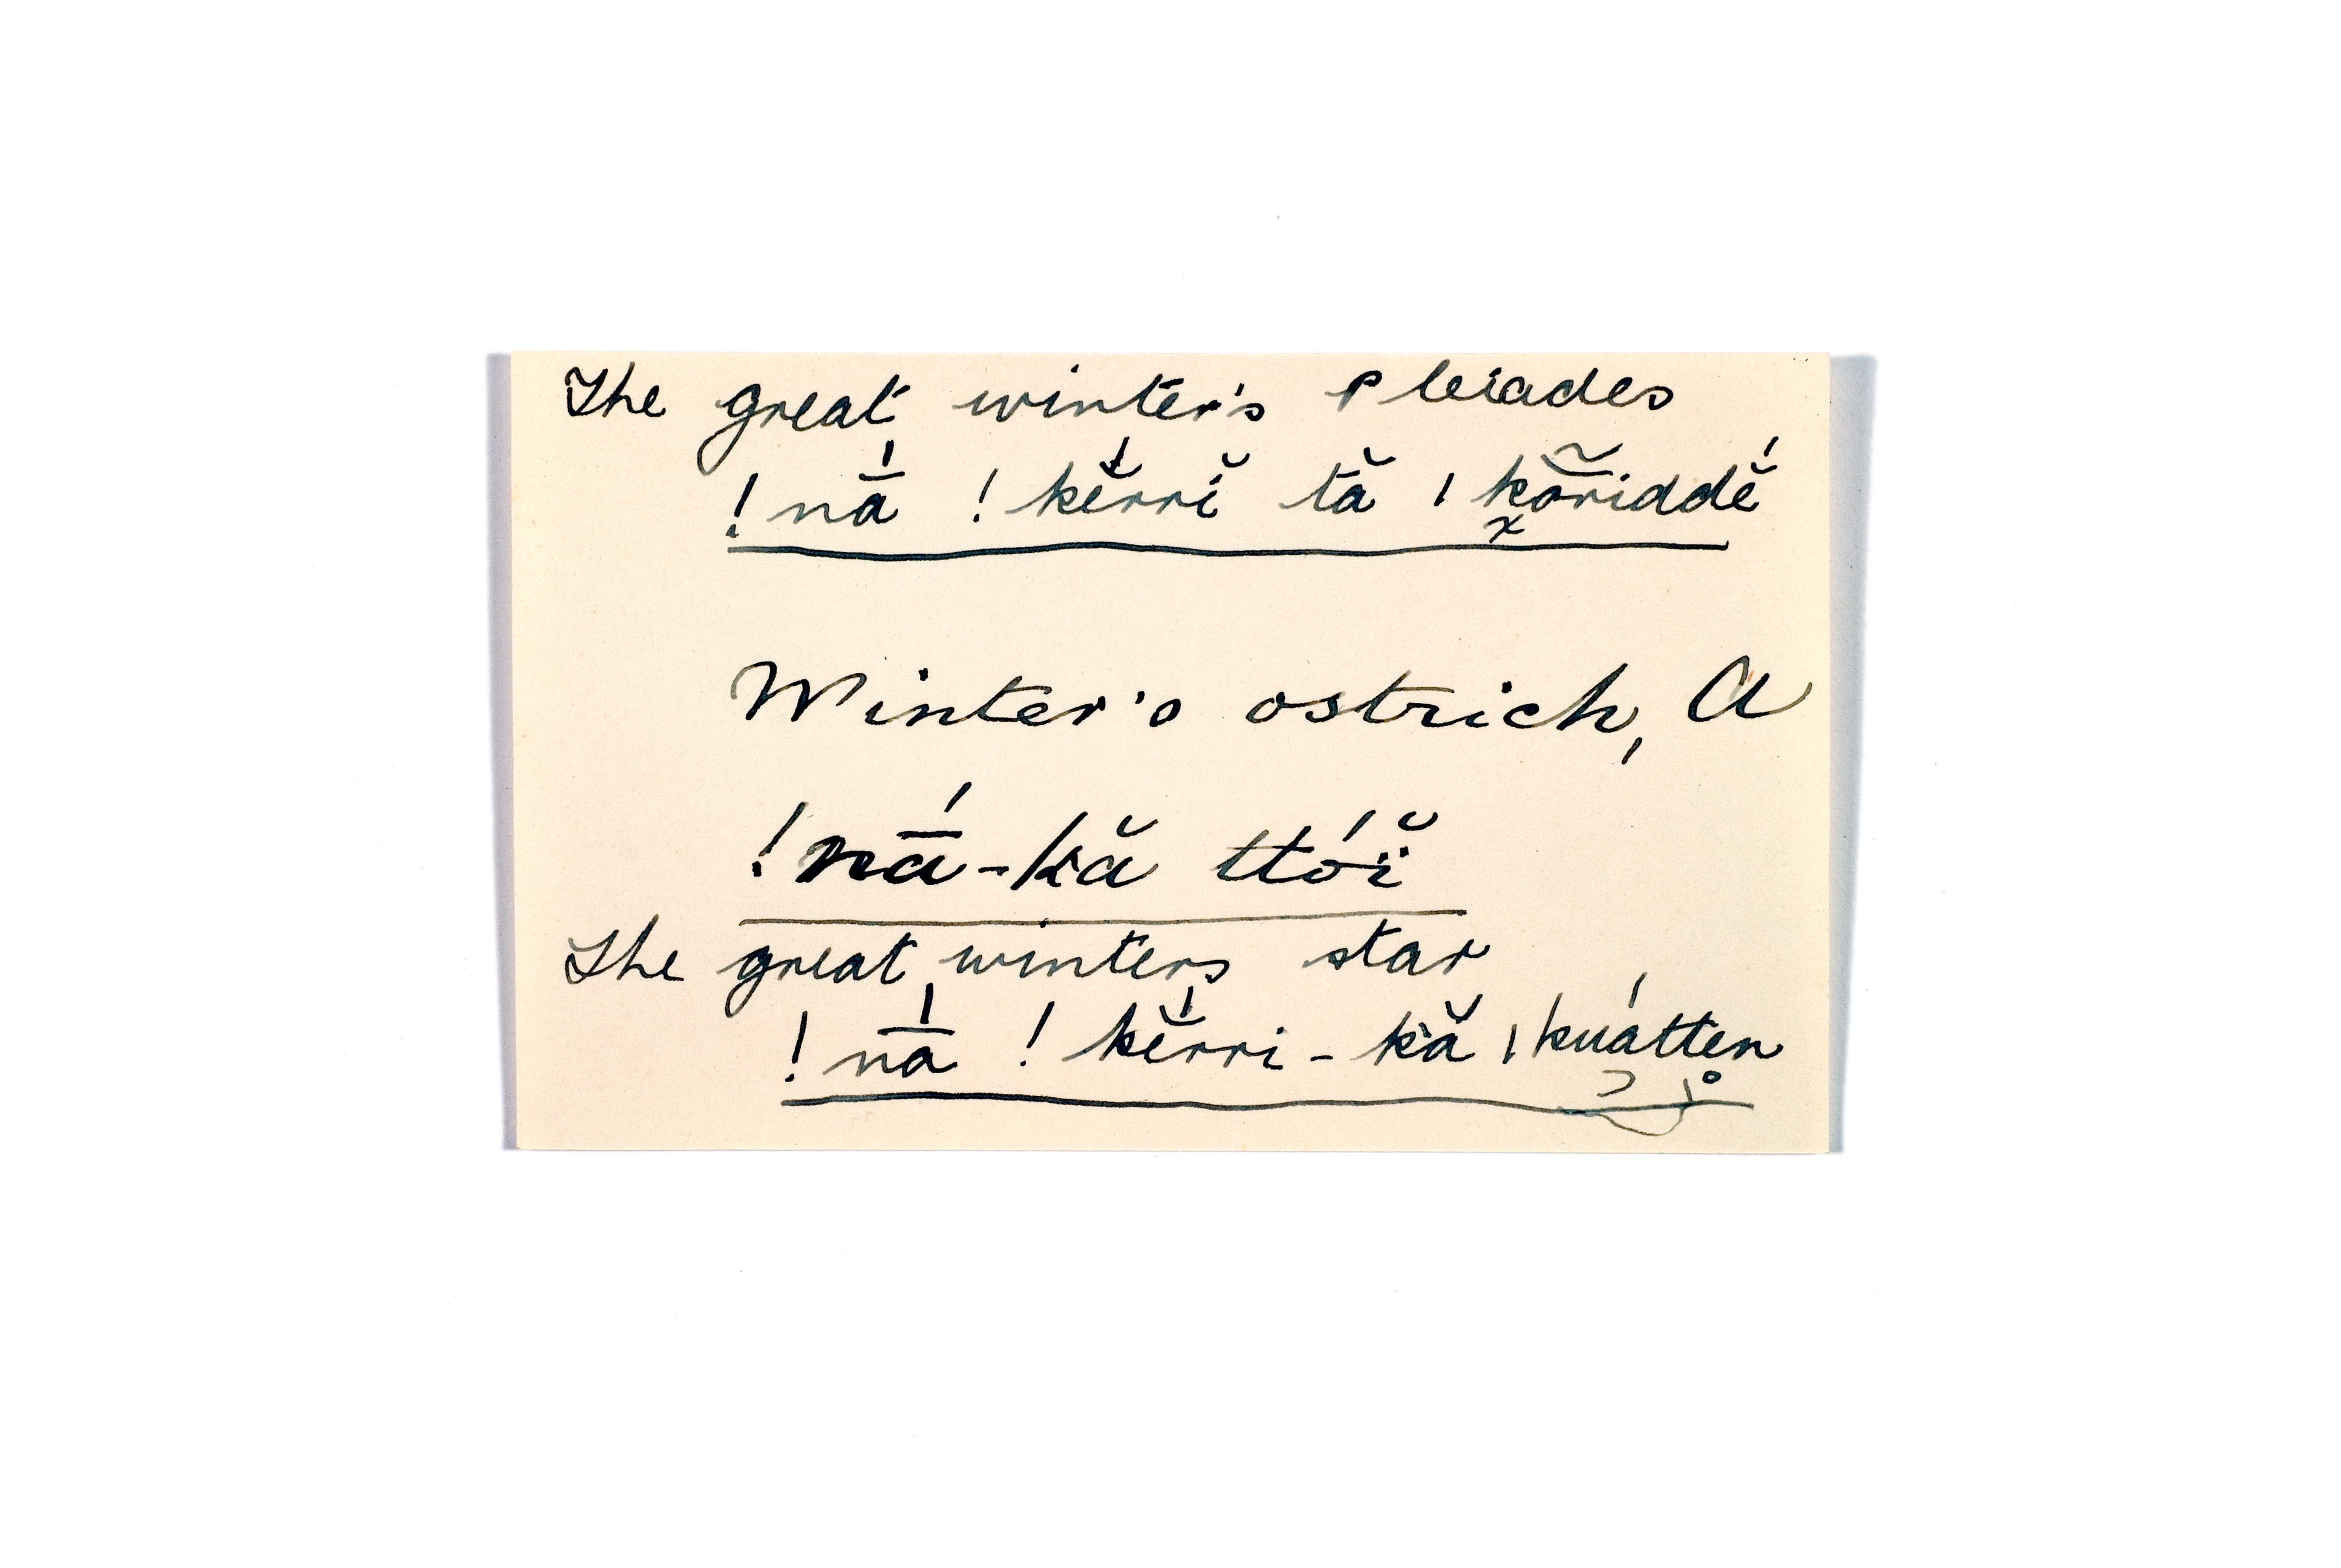 The great winter's Pleiades
!nā́ !kĕ́rrĭ tă ǀkō̃riddĕ́
Winter's ostrich, A
!nā́-kă ttóĭ̈
The great winters star
!nā́ !kĕ́rri-kă ǀkuátten